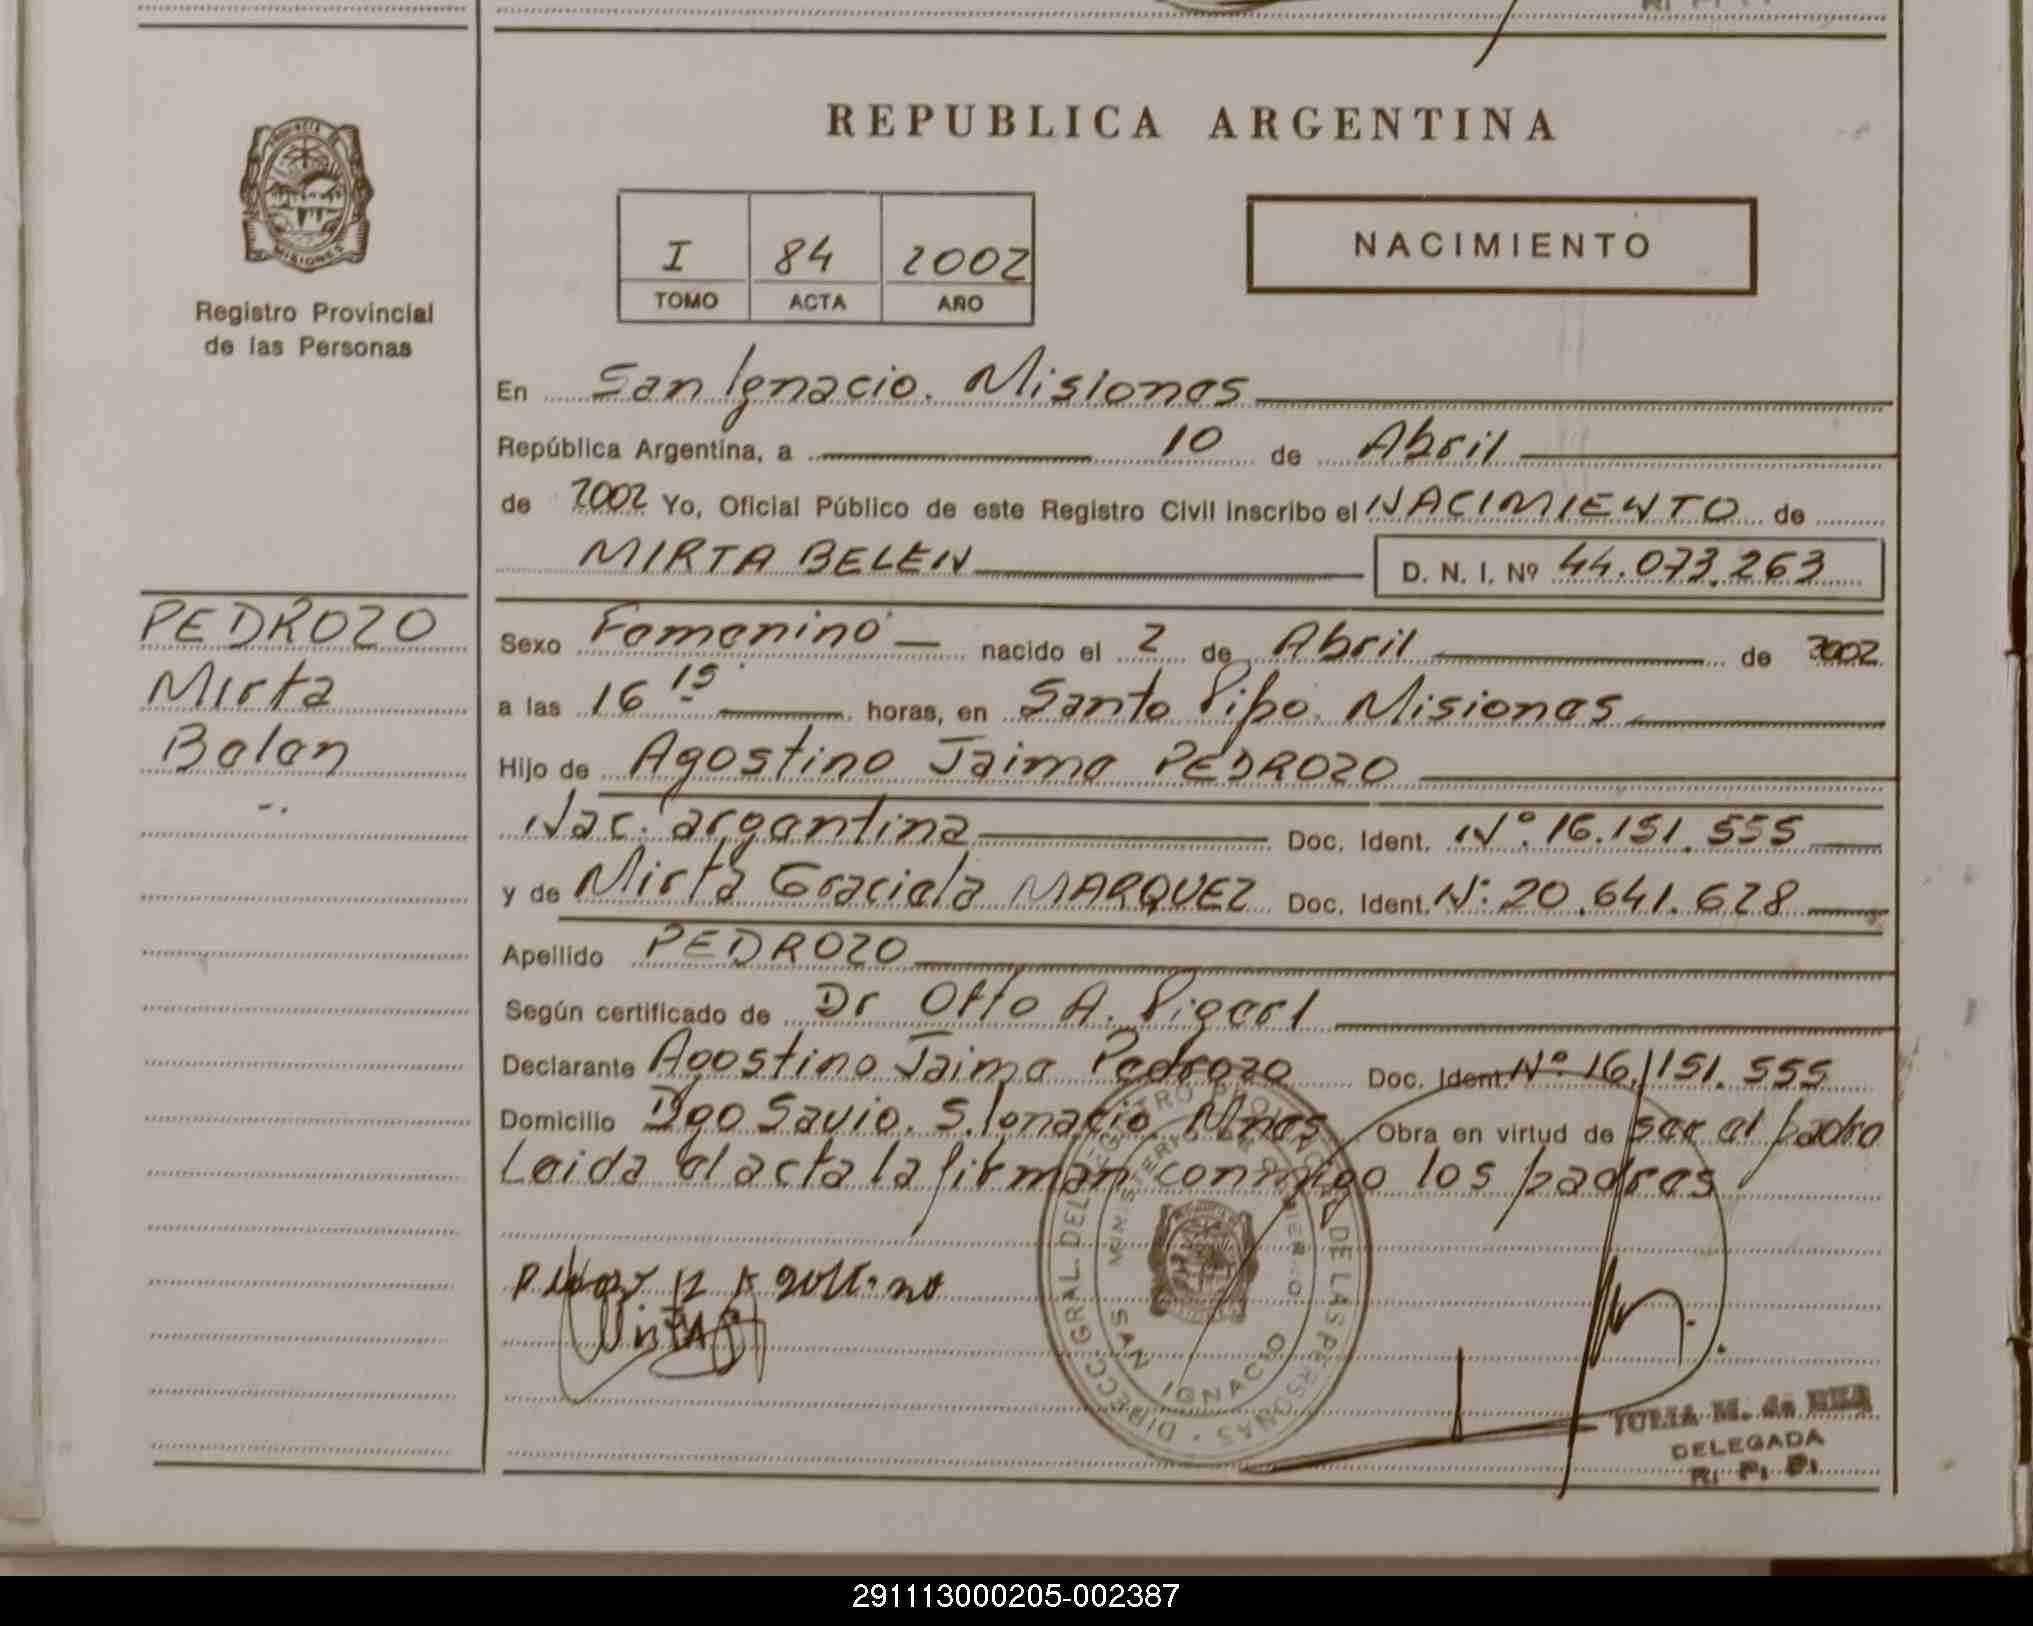 REPUBLICA ARGENTINA
PROVINCIA DE MISIONES
Registro Provincial
de las Personas
I 84 2002
TOMO ACTA AÑO
NACIMIENTO
En San Ignacio. Misiones
República Argentina, a 10 de Abril
de 2002 Yo, Oficial Público de este Registro Civil inscribo el NACIMIENTO de
MIRTA BELEN D. N. I. Nº 44.073.263
PEDROZO
Mirta
Belen
-.
Sexo Femenino nacido el 2 de Abril de 2002
a las 16 15 horas, en Santo Pipo. Misiones
Hijo de Agostino Jaime PEDROZO
Nac. argentina Doc. Ident. Nº. 16.151.555
y de Mirta Graciela MARQUEZ Doc. Ident. Nº: 20.641.628
Apellido PEDROZO
Según certificado de Dr Otto A.
Declarante Agostino Jaime Pedrozo Doc. Ident. Nº 16.151.555
Domicilio Dgo Savio. S. Ignacio Mnes Obra en virtud de ser el padre
Leida el acta la firman conmigo los padres
DIRECC. GRAL. DEL REGISTRO PROVINCIAL DE LAS PERSONAS
MINISTERIO DE GOBIERNO
SAN IGNACIO
JULIA M. de
DELEGADA
R. P. P.
291113000205-002387